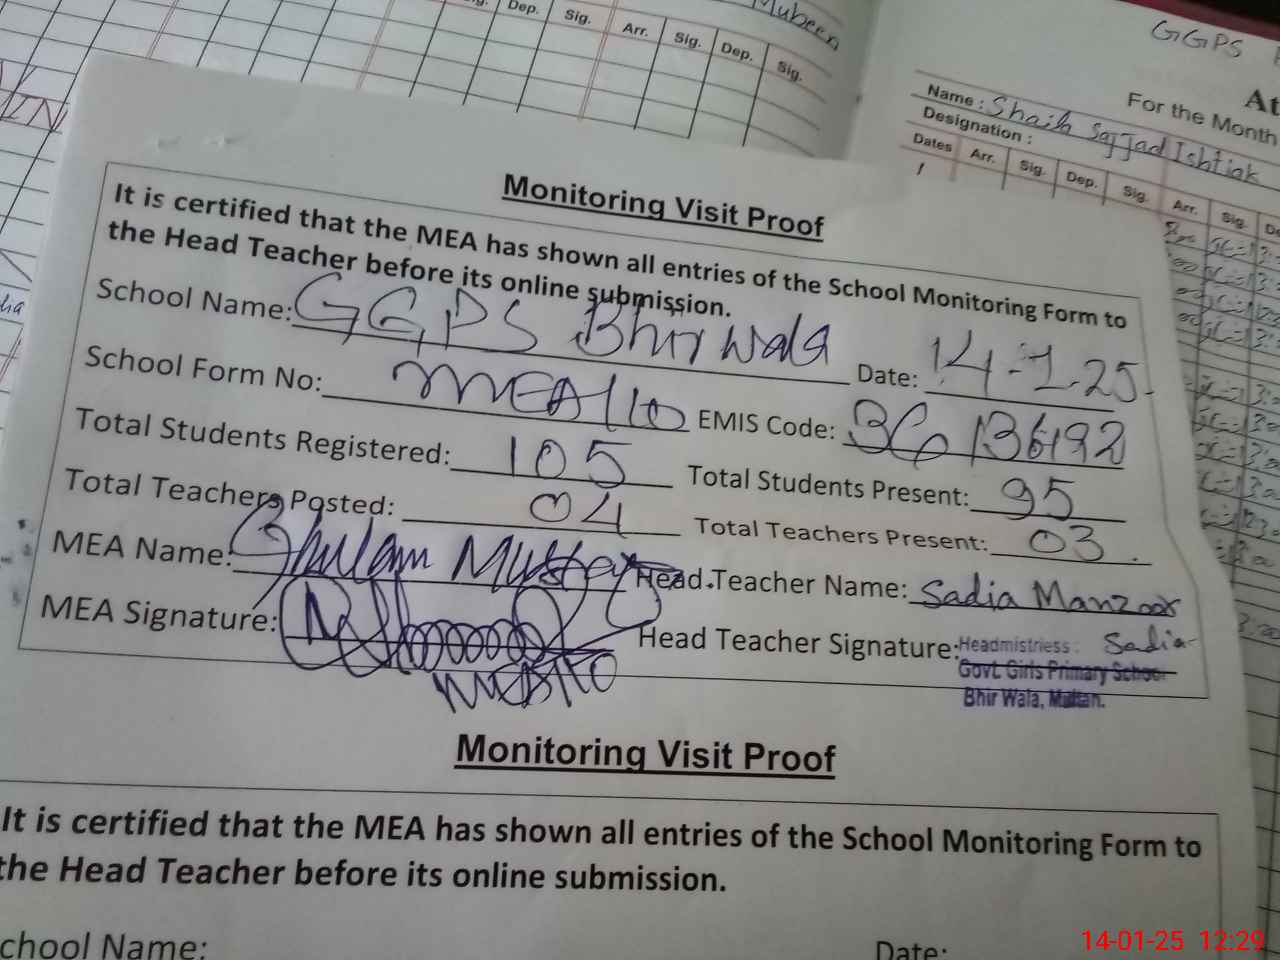 Mubeen
Sig. Dep. Sig. Arr. Sig. Dep. Sig.
GGPS
At
For the Month
Name: Shaih Sajjad Ishtiak
Designation :
Dates Arr. Sig. Dep. Sig. Arr. Sig. De
1
Monitoring Visit Proof
It is certified that the MEA has shown all entries of the School Monitoring Form to
the Head Teacher before its online submission.
School Name: GGPS Bhir Wala Date: 14-1-25
School Form No: MEA 110 EMIS Code: 36136192
Total Students Registered: 105 Total Students Present: 95
Total Teachers Posted: 04 Total Teachers Present: 03
MEA Name: Ghulam Mustafa Head Teacher Name: Sadia Manzoor
MEA Signature: Head Teacher Signature: Headmistriess: Sadia
Govt. Girls Primary School
Bhir Wala, Multan.
Monitoring Visit Proof
It is certified that the MEA has shown all entries of the School Monitoring Form to
the Head Teacher before its online submission.
chool Name: Date:
14-01-25 12:29